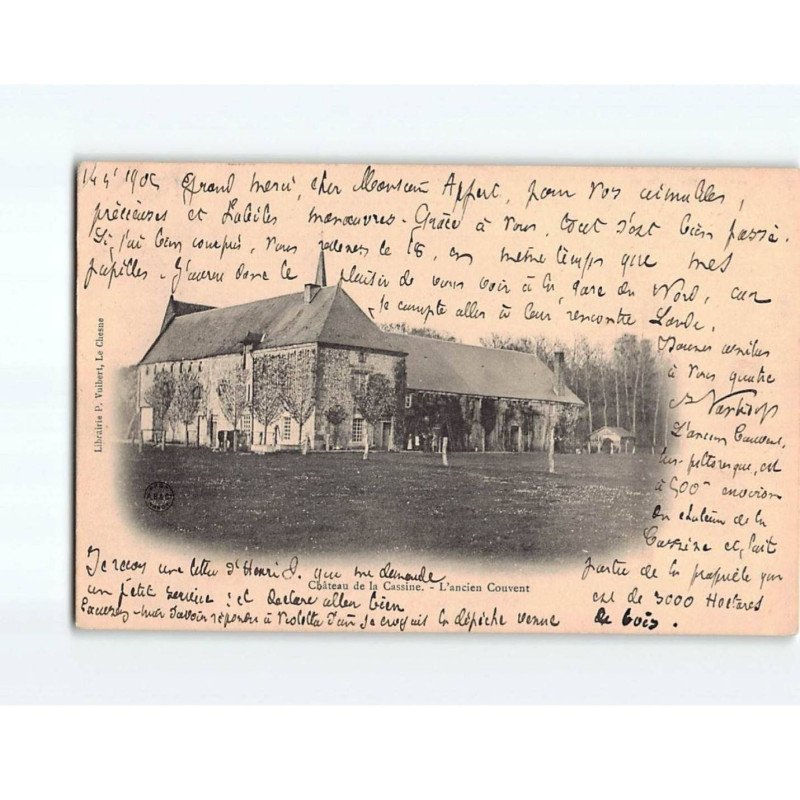 14 1905 Grand merci, cher Monsieur Appert, pour vos aimables,
précieuses et habiles manœuvres. Grâce à vous, tout s'est bien passé.
Si j'ai bien compris, vous redenez le 18, en même temps que mes
papilles. J'aurai donc le plaisir de vous voir à la gare du Nord, car
je compte aller à leur rencontre
Librairie P. Vuibert, Le Chesne
à vous quatre
L'ancien Couvent,
très pittoresque, est
à 500m environ
du château de la
Cassine et fait
partie de la propriété qui
est de 3000 Hectares
de bois.
Je reçois une lettre d'Henri J. que me demande
Château de la Cassine. - L'ancien Couvent
un petit service : et déclare aller bien
savoir répondre à Violette je croyait la dépêche venue